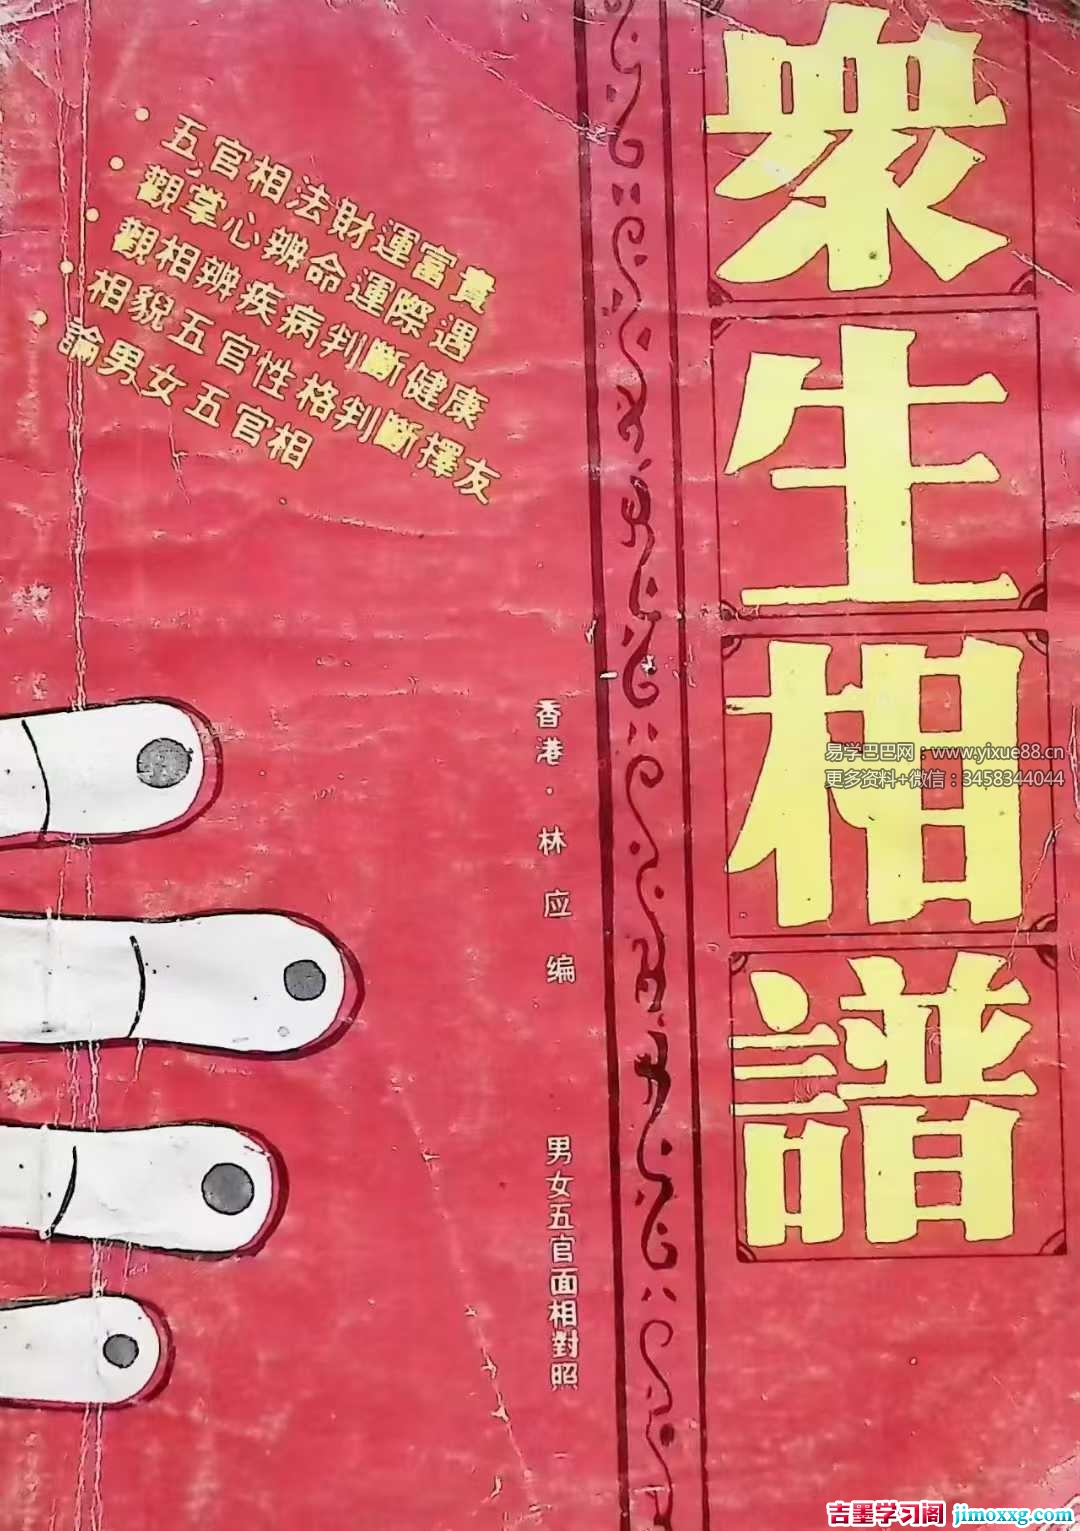 衆生相譜
五官相法財運富貴
觀掌心辨命運際遇
觀相辨疾病判斷健康
相貌五官性格判斷擇友
論男女五官相
香港·林应编
男女五官面相對照
易学巴巴网：www.yixue88.cn
更多资料+微信：3458344044
吉墨学习阁 jimoxxg.com